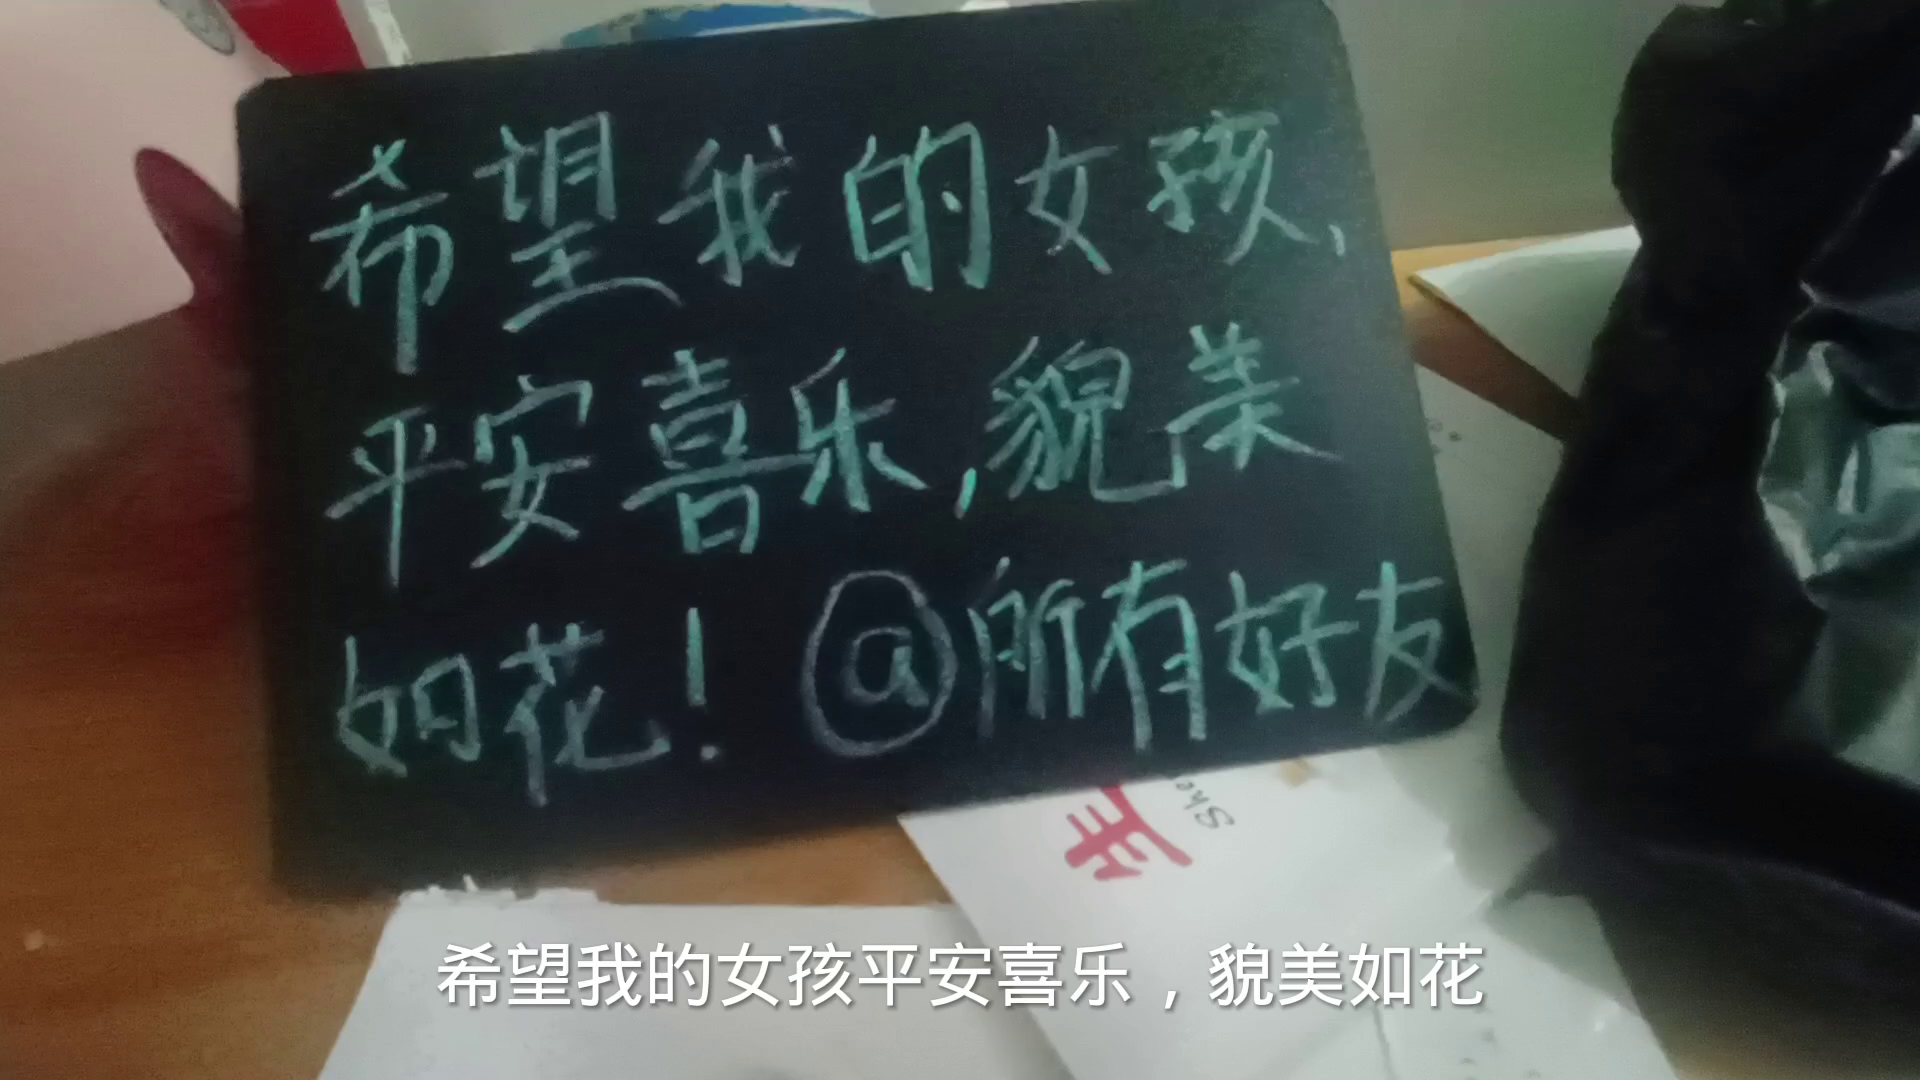 希望我的女孩，
平安喜乐，貌美
如花！@所有好友
She
希望我的女孩平安喜乐，貌美如花